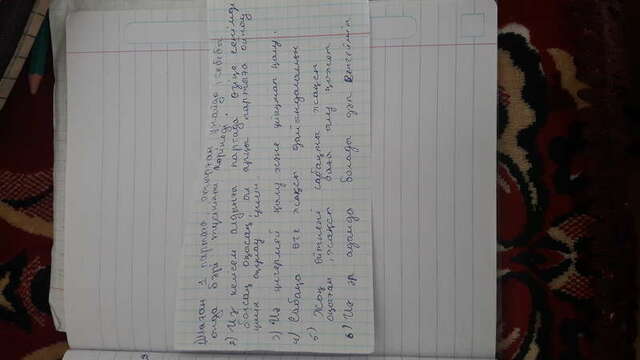 1) Маған 1 партаға отырған ұнайды, себебі
онда бәрі түсінікті көрінеді.
2) Иә кейсем алдыңғы партада өзіңе сенімді
болсаң оқысаң, ал артқы партаға ойнау
үшін оқымау үшін.
3) Иә үлгермей қалу және ұйықтап қалу.
4) Сабаққа өте жақсы дайындаламын
5) Жоқ өйткені сабақты жақсы
оқыған, жақсы баға алу қажет
6) Иә әр адамда болады деп сенеймін